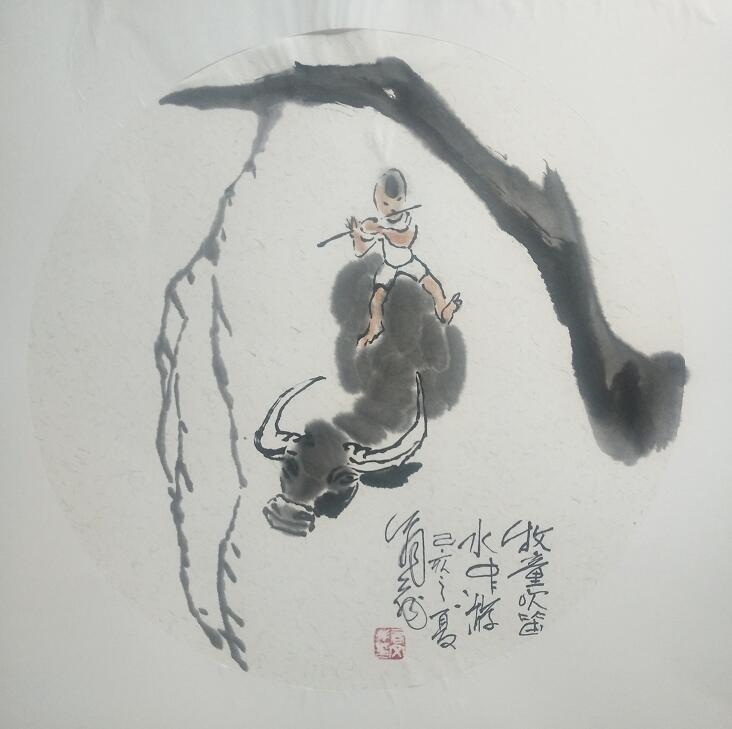 牧童吹笛
水中游
己亥之夏